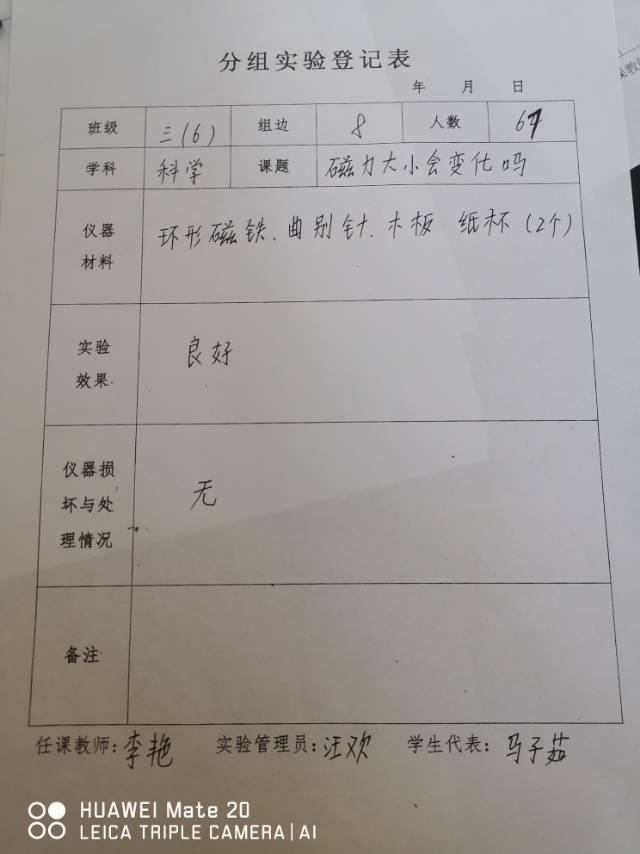 分组实验登记表
年 月 日
班级 三(6) 组边 8 人数 67
学科 科学 课题 磁力大小会变化吗
仪器材料 环形磁铁、曲别针、木板 纸杯(2个)
实验效果 良好
仪器损坏与处理情况 无
备注
任课教师:李艳 实验管理员:汪欢 学生代表:马子茹
HUAWEI Mate 20
LEICA TRIPLE CAMERA|AI